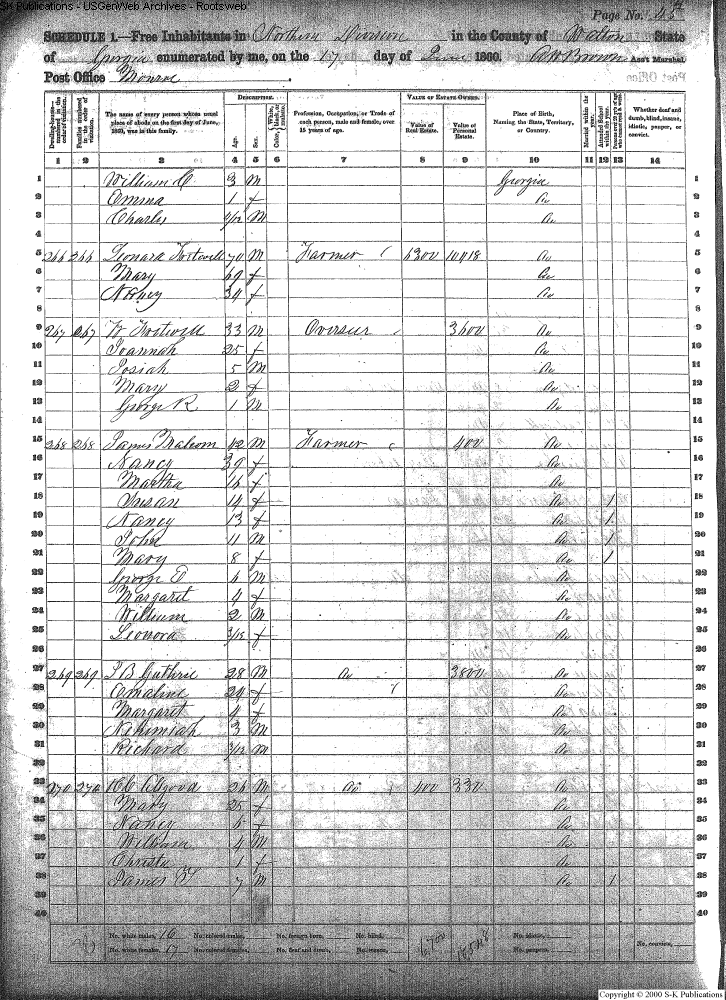 S-K Publications - USGenWeb Archives - Rootsweb
Page No. 45
SCHEDULE 1.—Free Inhabitants in Northern Division in the County of Walton State
of Georgia enumerated by me, on the 17 day of June 1860. Ass't Marshal.
Post Office Monroe
Dwelling-houses—numbered in the order of visitation.
Families numbered in the order of visitation.
The name of every person whose usual place of abode on the first day of June, 1860, was in this family.
DESCRIPTION.
Age.
Sex.
Color, White, black, or mulatto.
Profession, Occupation, or Trade of each person, male and female, over 15 years of age.
VALUE OF ESTATE OWNED.
Value of Real Estate.
Value of Personal Estate.
Place of Birth, Naming the State, Territory, or Country.
Married within the year.
Attended School within the year.
Whether deaf and dumb, blind, insane, idiotic, pauper, or convict.
1 2 3 4 5 6 7 8 9 10 11 12 13 14
1 William C 3 M Georgia 1
2 Emma 1 f Do 2
3 Charles M Do 3
4
5 266 266 Leonard 70 M Farmer 6300 10418 Do 5
6 Mary 69 f Do 6
7 Nancy 34 f Do 7
8 8
9 267 267 W 33 M Overseer 3600 Do 9
10 Joannah 25 f Do 10
11 Josiah 5 M Do 11
12 Mary 2 f Do 12
13 George R 1 M Do 13
14 14
15 268 268 James Malcom 42 M Farmer 400 Do 15
16 Nancy 39 f Do 16
17 Martha 16 f Do 17
18 Susan 14 f Do 1 18
19 Nancy 13 f Do 1 19
20 John 11 M Do 1 20
21 Mary 8 f Do 1 21
22 George D 6 M Do 22
23 Margaret 4 f Do 23
24 William 2 M Do 24
25 Leonora 3/12 f Do 25
26
27 269 269 J B Guthrie 28 M Do 3800 Do 27
28 Emaline 29 f Do 28
29 Margaret 4 f Do 29
30 Nehimiah 3 M Do 30
31 Richard 3/12 M Do 31
32 32
33 270 270 26 M Do 400 330 Do 33
34 Mary 25 f Do 34
35 Nancy 6 f Do 35
36 William 4 M Do 36
37 Christu 1 f Do 37
38 James 7 M Do 1 38
39 39
40 40
No. white males, 16 No. colored males, No. foreign born, No. blind, No. idiotic,
No. white females, 17 No. colored females, No. deaf and dumb, No. insane, 6,700 18,548 No. paupers, No. convicts,
Copyright © 2000 S-K Publications